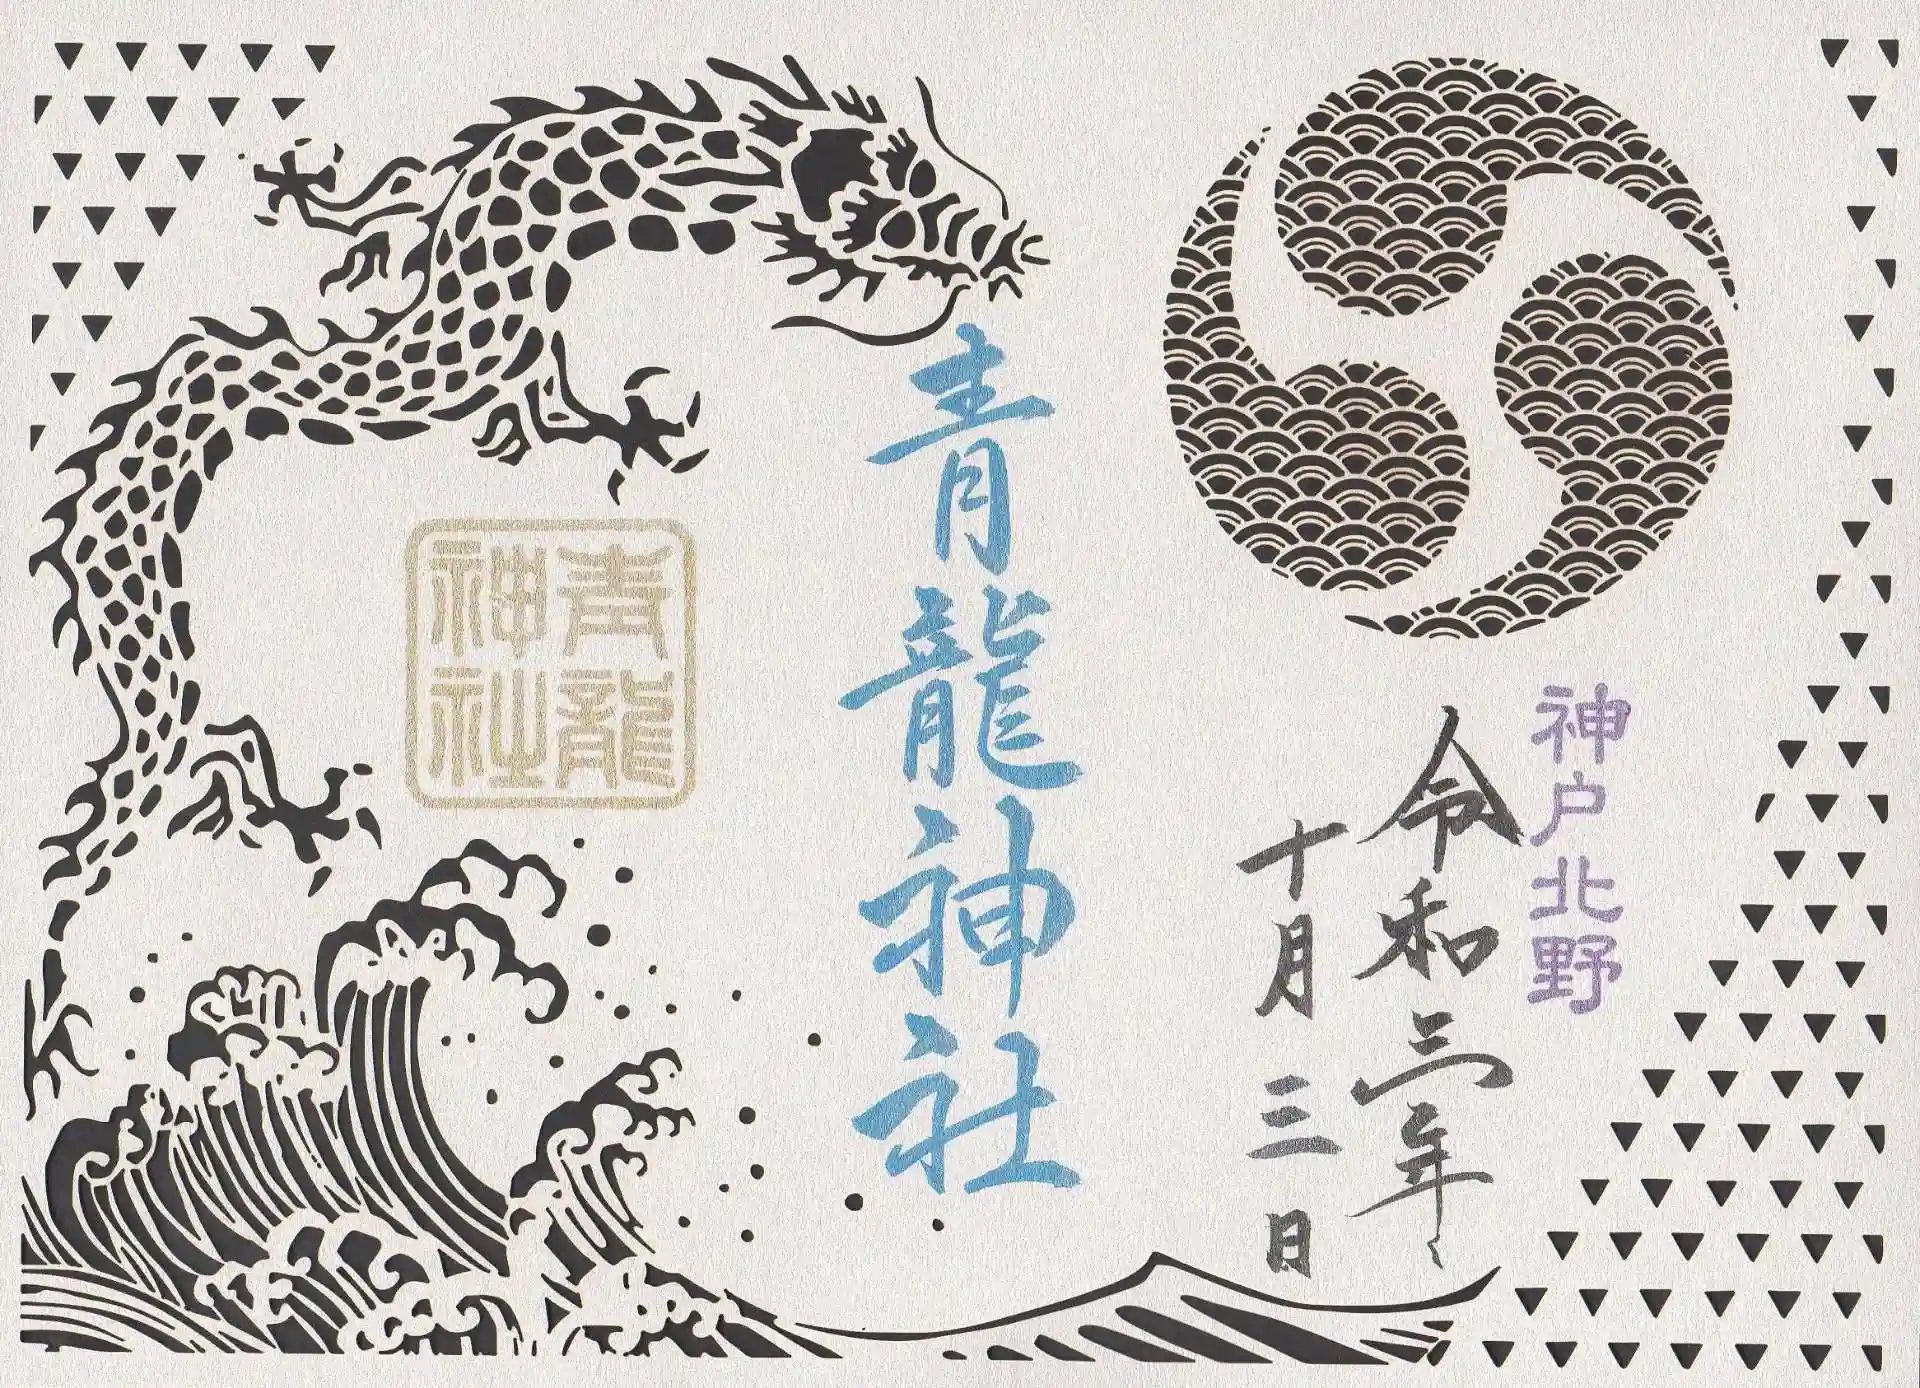 神戸北野
令和三年
十月三日
青龍神社
青龍
神社